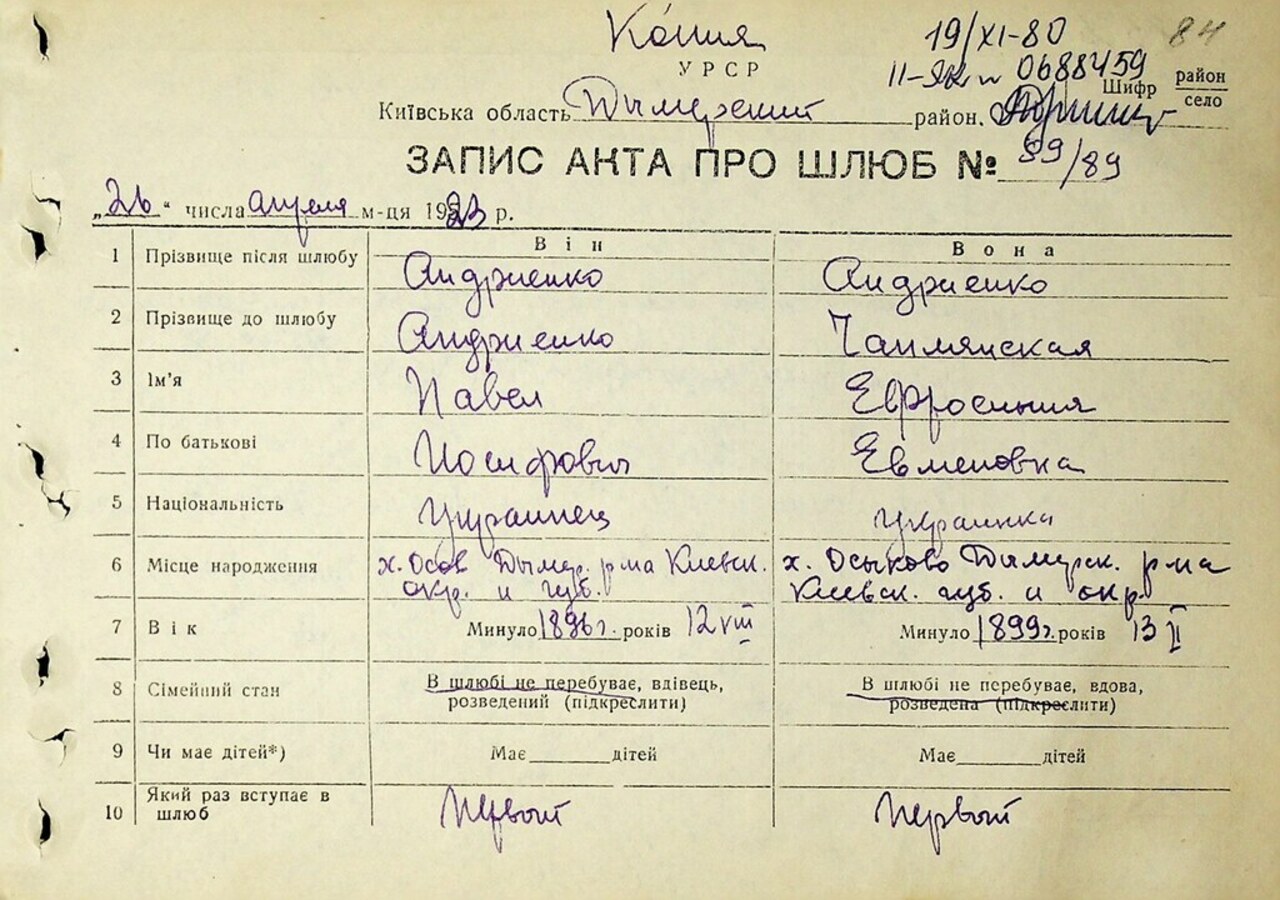 Копия
19/XI-80
84
УРСР
0688459
Шифр район
село
Київська область Дымерский район.
ЗАПИС АКТА ПРО ШЛЮБ №
/89
„26“ числа апреля м-ця 1923 р.
Він
Вона
1 Прізвище після шлюбу Андриенко Андриенко
2 Прізвище до шлюбу Андриенко
3 Ім'я Павел Евфросиния
4 По батькові Иосифович Евменовна
5 Національність украинец украинка
6 Місце народження х. Осов Дымер. р-на Киевск. окр. и губ. х. Осыково Дымерск. р-на Киевск. губ. и окр.
7 Вік Минуло 1896 г. років 12 VIII Минуло 1899 г. років 13 II
8 Сімейний стан В шлюбі не перебуває, вдівець, розведений (підкреслити) В шлюбі не перебуває, вдова, розведена (підкреслити)
9 Чи має дітей*) Має дітей Має дітей
10 Який раз вступає в шлюб первый первый